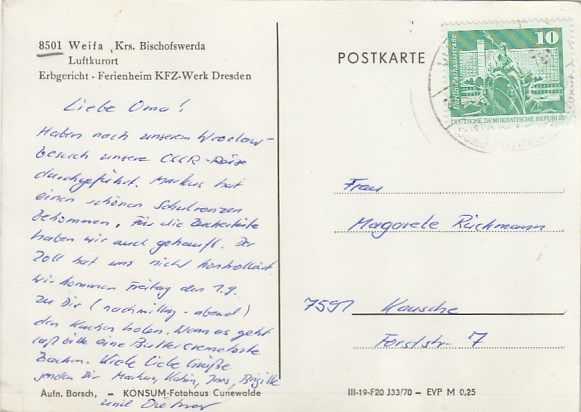 8501 Weifa, Krs. Bischofswerda
Luftkurort
Erbgericht - Ferienheim KFZ-Werk Dresden
Liebe Oma!
Haben nach unserem Wroclaw-
besuch unsere CSSR-Reise
durchgeführt. Markus hat
einen schönen Schulranzen
bekommen. Für die Zuckertüte
haben wir auch gekauft. Der
Zoll hat uns nicht kontrolliert.
Wir kommen Freitag den 1.9.
zu Dir (nachmittag-abend)
den Kuchen holen. Wenn es geht
laß bitte eine Buttercremetorte
backen. Viele liebe Grüße
senden Dir Markus, Katrin, Ines, Brigitte
und Dietmar
Aufn. Borsch, - KONSUM-Fotohaus Cunewalde
POSTKARTE
10
Berlin, Rathausstraße
DEUTSCHE DEMOKRATISCHE REPUBLIK
Frau
Margarete Rückmann
7591 Kausche
Forststr. 7
III-19-F20 J33/70 - EVP M 0,25